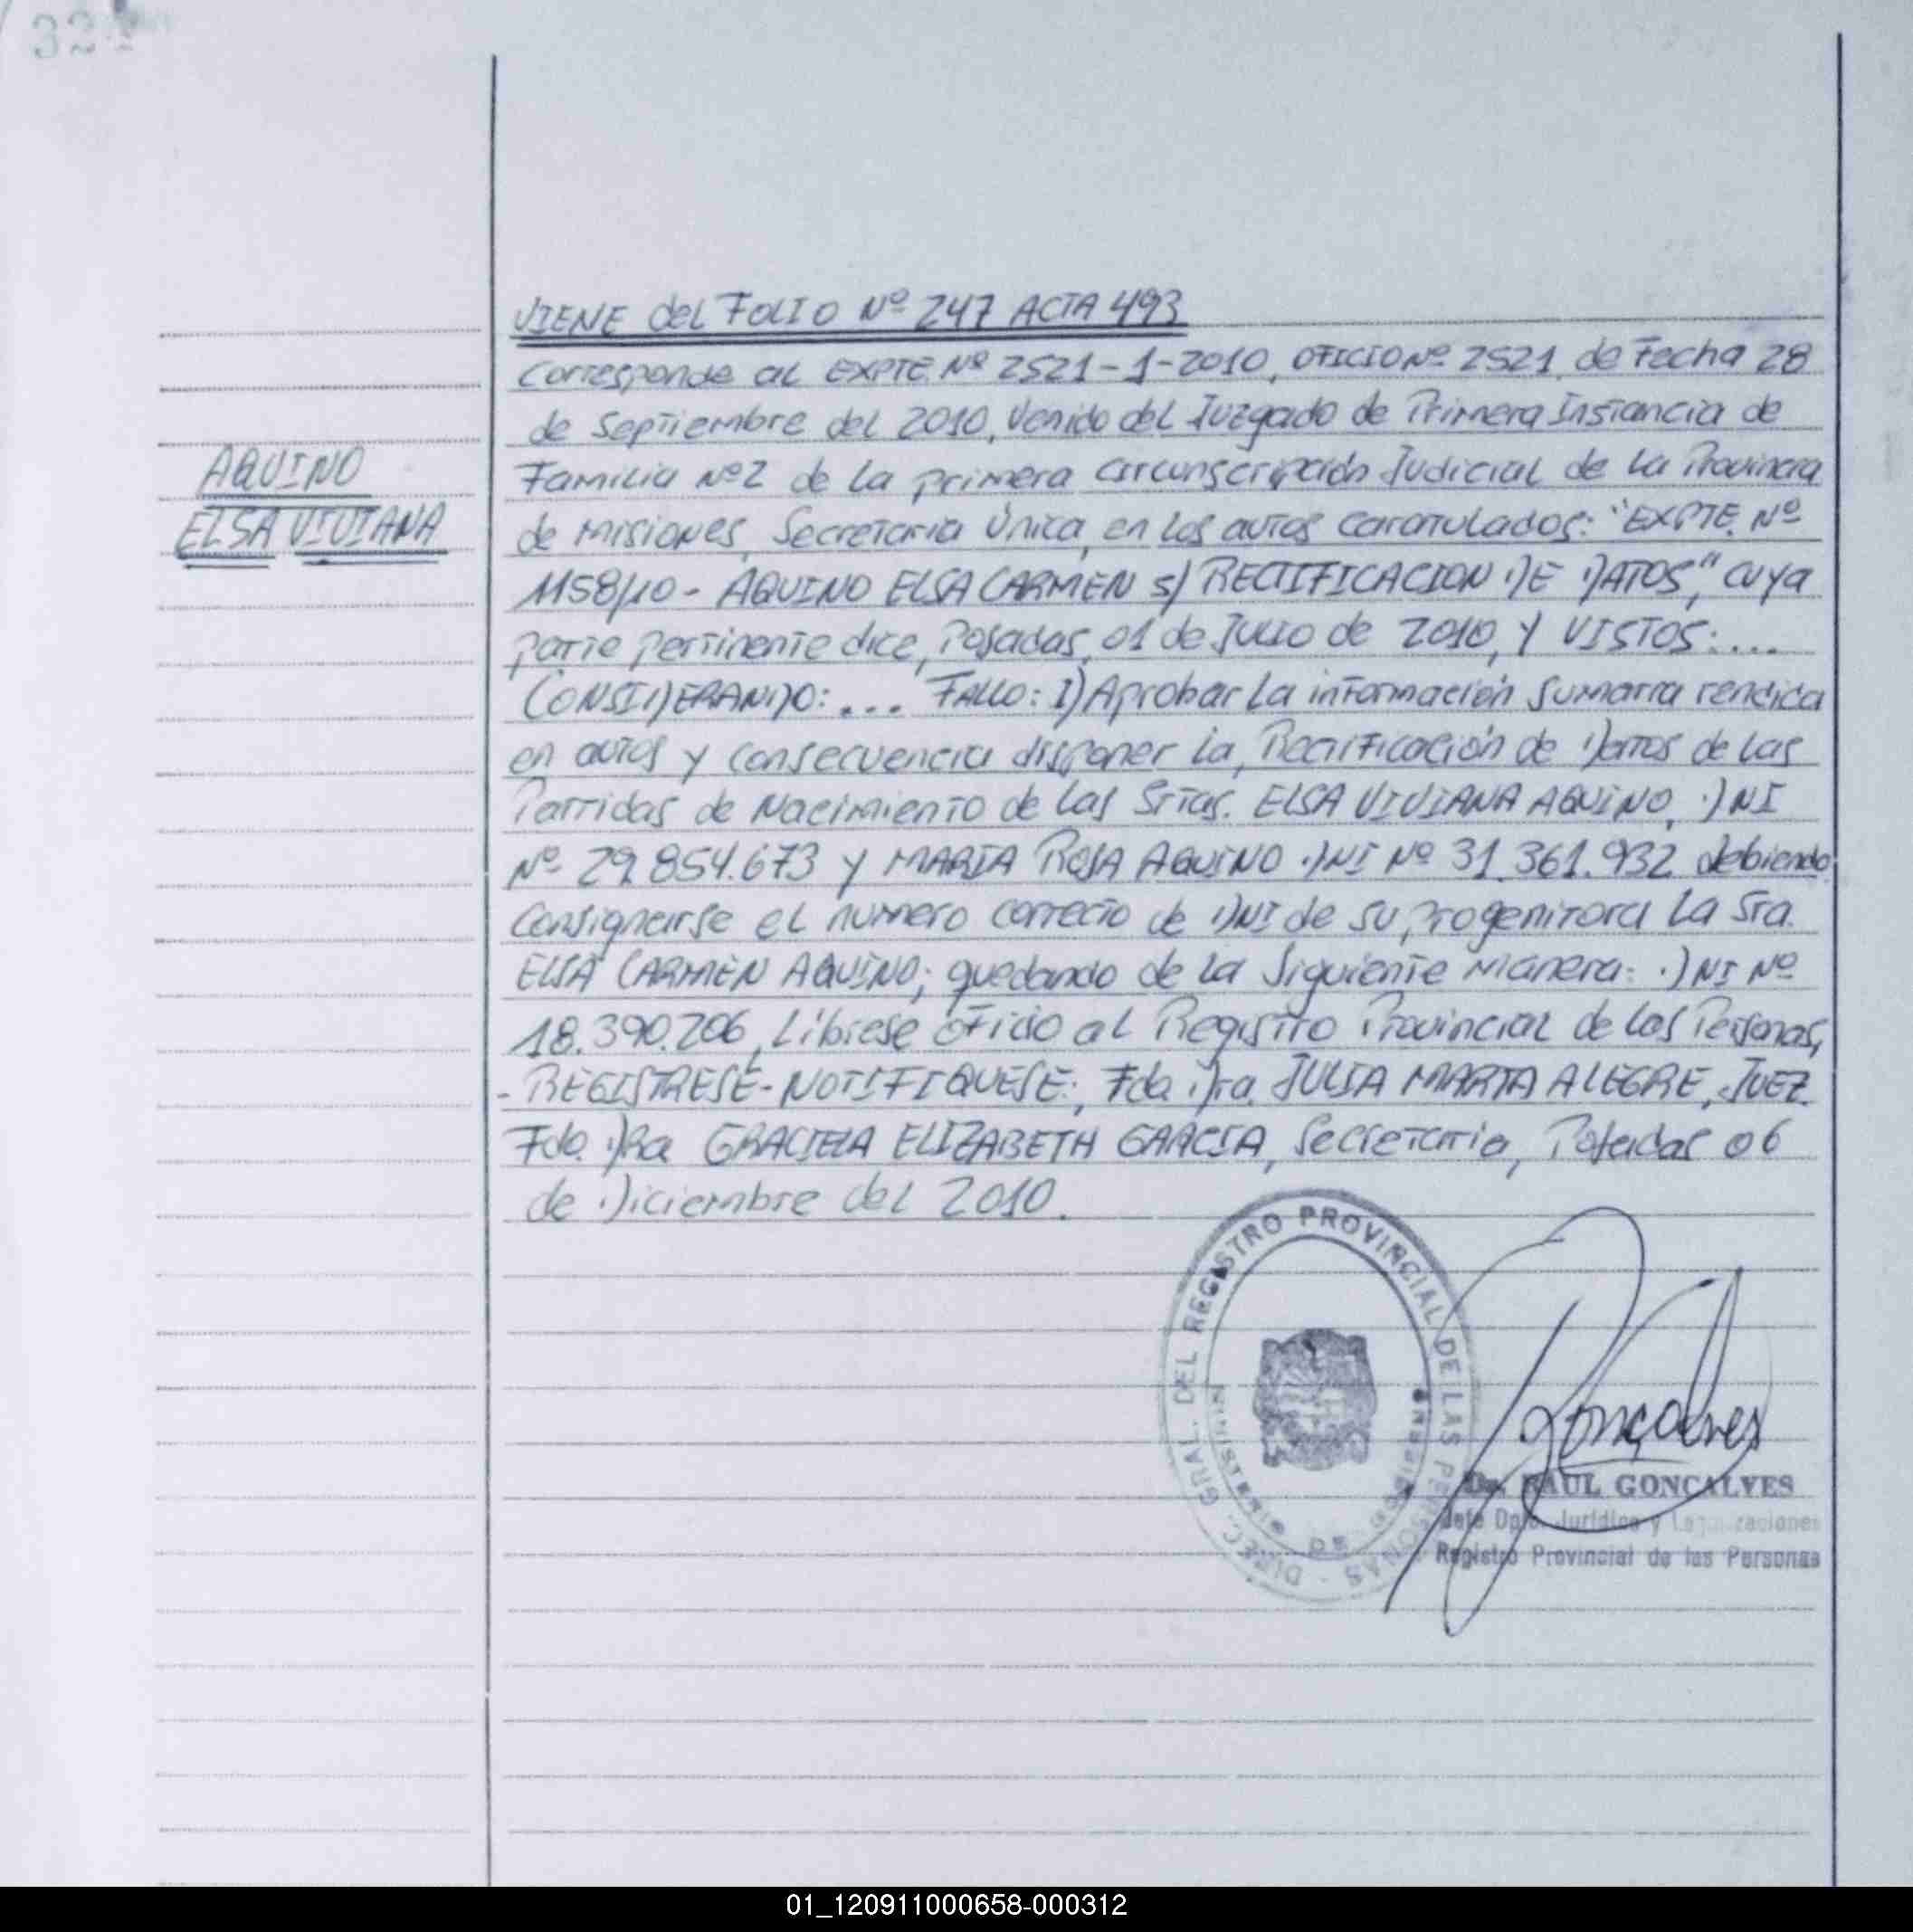 VIENE del FOLIO Nº 247 ACTA 493
Corresponde al EXPTE Nº 2521-1-2010, OFICIO Nº 2521, de Fecha 28
de Septiembre del 2010, Venido del Juzgado de Primera Instancia de
AQUINO
ELSA VIVIANA
Familia Nº2 de la primera circunscripción Judicial de la Provincia
de Misiones, Secretaria Única, en los autos caratulados: "EXPTE. Nº
1158/10 - AQUINO ELSA CARMEN s/ RECTIFICACION DE DATOS", cuya
parte pertinente dice, Posadas, 01 de Julio de 2010, Y VISTOS:....
CONSIDERANDO: ... FALLO: I) Aprobar la información sumaria rendida
en autos y consecuencia disponer la, Rectificación de Datos de las
Partidas de Nacimiento de las Srtas. ELSA VIVIANA AQUINO, DNI
Nº 29.854.673 y MARIA ROSA AQUINO DNI Nº 31.361.932 debiendo
Consignarse el numero correcto de DNI de su progenitora la Sra.
ELSA CARMEN AQUINO; quedando de la siguiente manera: DNI Nº
18.390.206, Líbrese oficio al Registro Provincial de las Personas,
- REGISTRESE - NOTIFIQUESE:, Fdo. Dra. JULIA MARTA ALEGRE, JUEZ.
Fdo. DRa GRACIELA ELIZABETH GARCIA, Secretaria, Posadas 06
de Diciembre del 2010.
DIREC. GRAL. DEL REGISTRO PROVINCIAL DE LAS PERSONAS
MINISTERIO DE GOBIERNO
Gonçalves
Dr. RAUL GONCALVES
Jefe Dpto. Jurídico y
Registro Provincial de las Personas
01_120911000658-000312